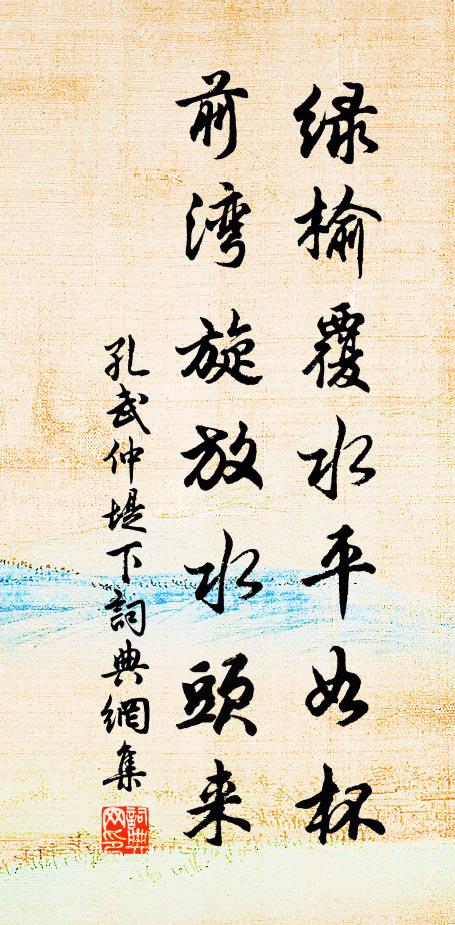 绿榆覆水平如杯
前湾旋放水頭来
孔武仲堤下詞典網集
詞典网印